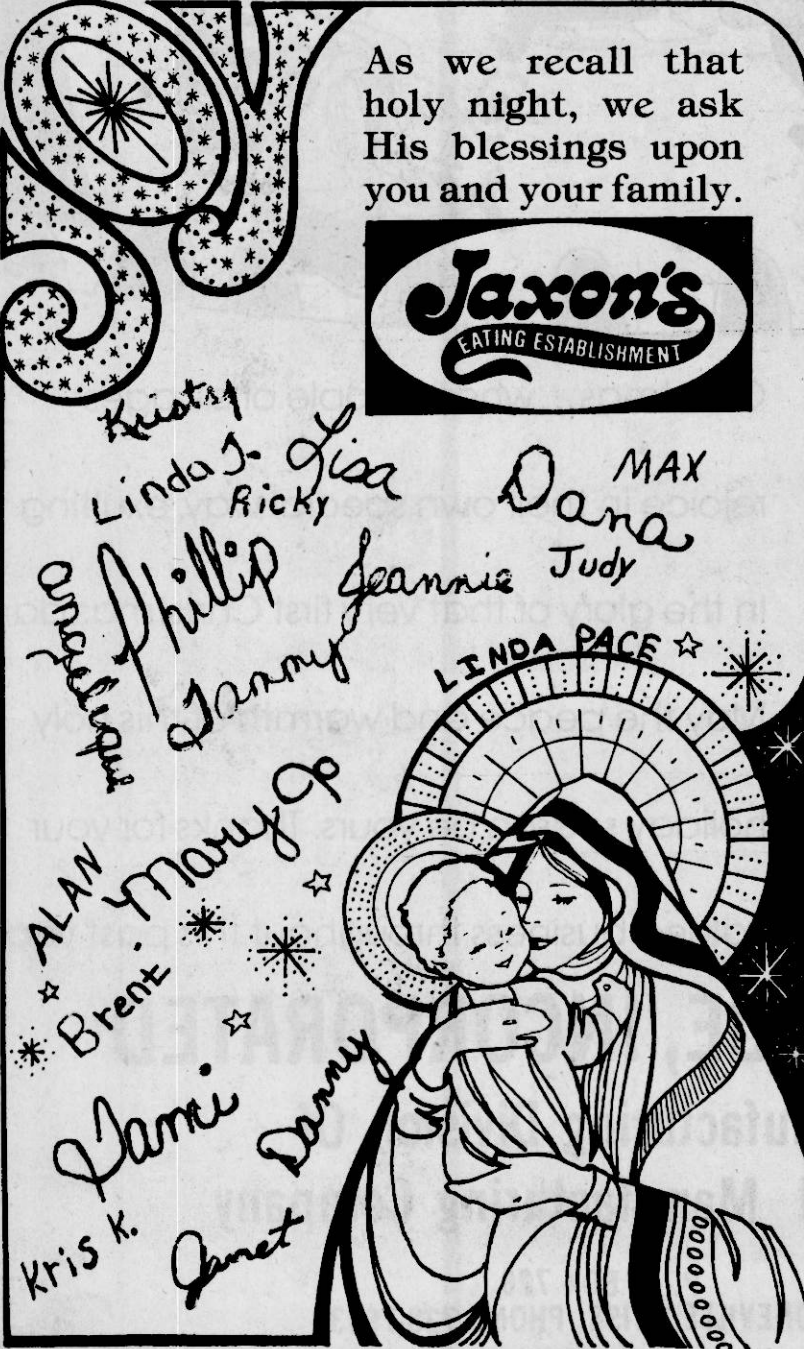 As we recall that
holy night, we ask
His blessings upon
you and your family.
Jaxon's
EATING ESTABLISHMENT
Kristy
Linda J.
Lisa
Ricky
Dana
MAX
Judy
Angelique
Phillip
Jeannie
Tammy
LINDA PACE
Mary Jo
ALAN
Brent
Tami
Danny
Kris K.
Janet